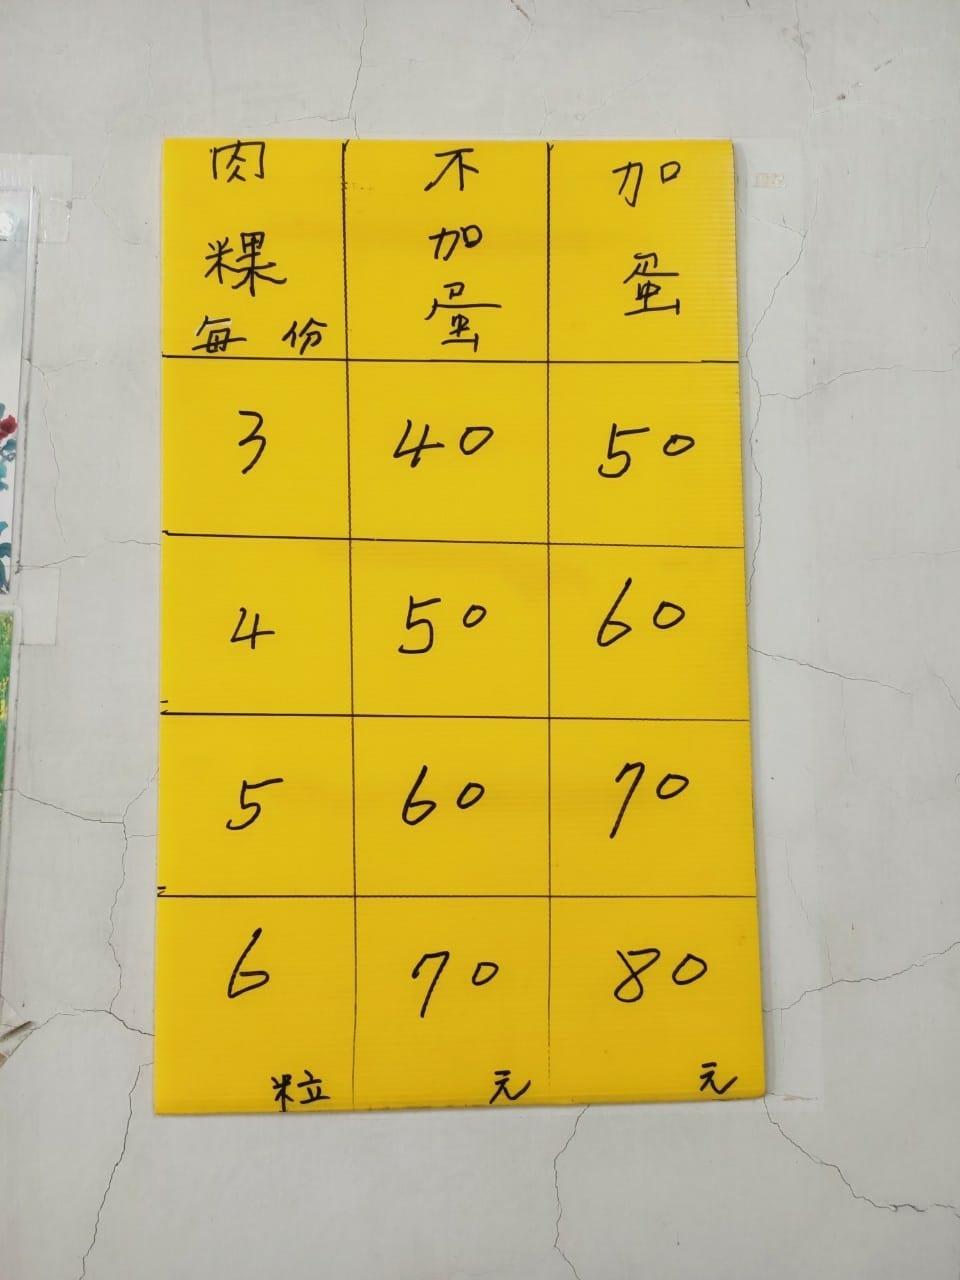 肉粿每份 不加蛋 加蛋
3 40 50
4 50 60
5 60 70
6 70 80
粒 元 元